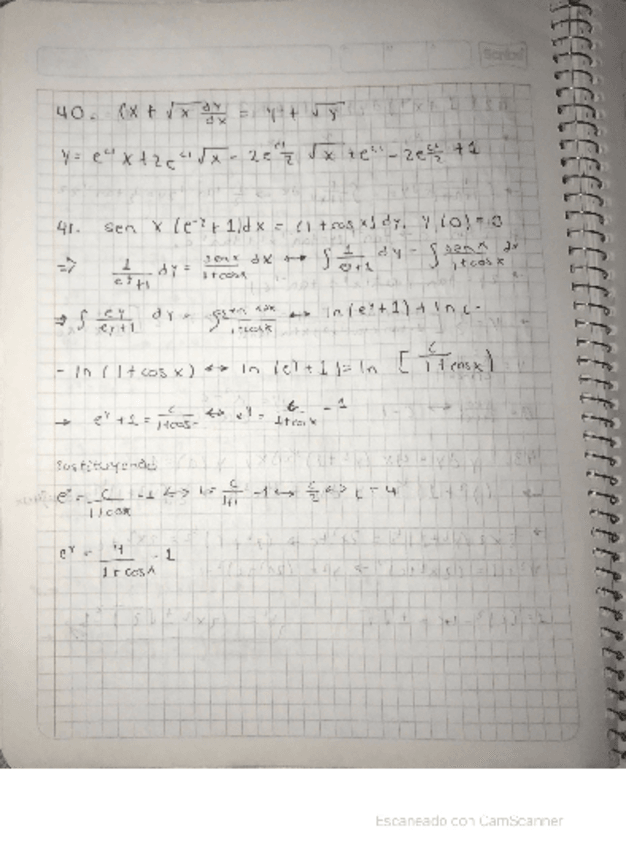 Scribe
40. (x + √x) dy/dx = y + √y
y = e^c1 x + 2e^c1 √x - 2e^(c1/2) √x + e^c1 - 2e^(c1/2) + 1
41. sen x (e^-y + 1)dx = (1 + cos x) dy, y(0) = 0
=> 1/(e^-y + 1) dy = sen x/(1+cos x) dx ↔ ∫ 1/(e^-y + 1) dy = ∫ sen x/(1+cos x) dx
→ ∫ e^y/(e^y + 1) dy = ∫ sen x dx/(1+cos x) ↔ ln(e^y + 1) + ln c =
- ln (1 + cos x) ↔ ln (e^y + 1) = ln [c/(1 + cos x)]
→ e^y + 1 = c/(1+cos x) ↔ e^y = c/(1+cos x) - 1
Sustituyendo
↔ c = 4
e^y = 4/(1 + cos x) - 1
Escaneado con CamScanner